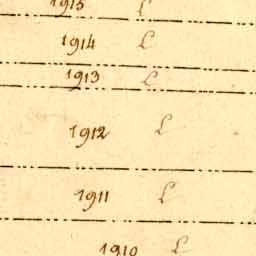 1915 L
1914 L
1913 L
1912 L
1911 L
1910 L